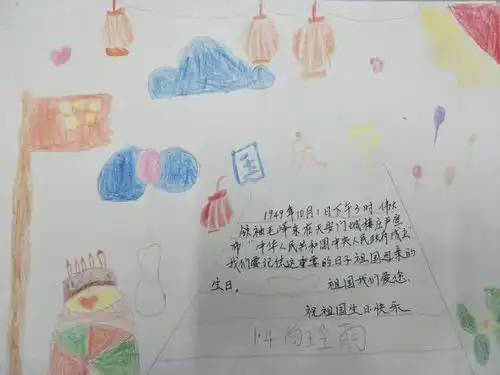 国庆节
1949年10月1日下午3时 伟大
领袖毛泽东在天安门城楼庄严宣
布“中华人民共和国中央人民政府成立
我们要记住这重要的日子祖国母亲的
生日。 祖国我们爱您.
祝祖国生日快乐
1.4 雨